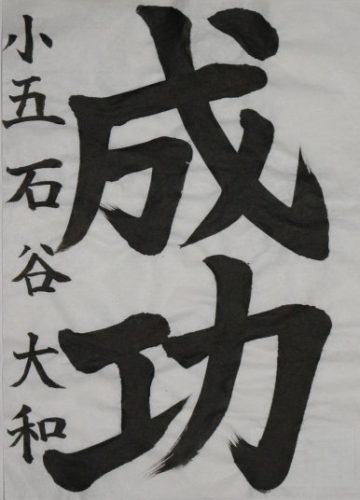 成功
小五 石谷 大和